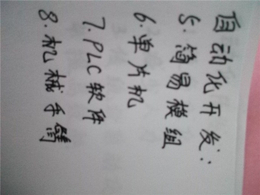 自动化开发:
5. 简易模组
6. 单片机
7. PLC 软件
8. 机械手臂